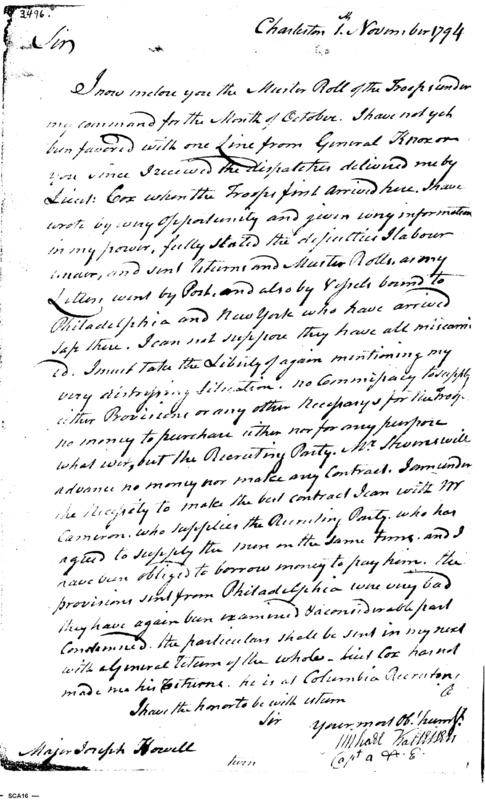 3496.
Charleston 1st. November 1794
Sir
I now inclose you the Muster Roll of the Troops under
my command for the Month of October. I have not yet
been favored with one Line from General Knox or
you since I received the dispatches delivered me by
Lieut: Cox when the Troops first arrived here. I have
wrote by every Opportunity and given every information
in my power, fully stated the dificulties I labour
under, and sent Returns and Muster Rolls, as my
Letters went by Post, and also by Vessels bound to
Philadelphia and New York who have arrived
safe there. I can not suppose they have all miscarri
ed. I must take the Liberty of again mentioning my
very distressing Situation. no Commissary to supply
either Provisions or any other Necessarys for the Troops
no money to purchase either nor for any purpose
what ever, but the Recruiting Party. Mr. Stevens will
advance no money nor make any Contract. I am under
the Necessity to make the best contract I can with Mr
Cameron. who supplies the Recruiting Party. who has
agreed to supply the men on the same terms. and I
have been obliged to borrow money to pay him. the
provisions sent from Philadelphia were very bad
they have again been examined & a considerable part
Condemned. the particulars shall be sent in my next
with a General Return of the whole - Lieut Cox has not
made me his Returns. he is at Columbia Recruiting
I have the honor to be with esteem
Sir
Your most Ob. humb St.
Michael
Capt. a & E.
Major Joseph Howell
- SCA16 -